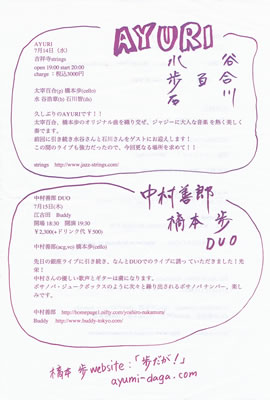 AYURI
7月14日（水）
吉祥寺strings
open 19:00 start 20:00
charge ：税込3000円
太宰百合(p) 橋本歩(cello)
水谷浩章(b) 石川智(ds)
久しぶりのAYURIです！！
太宰百合、橋本歩のオリジナル曲を織り交ぜ、ジャジーに大人な音楽を熱く楽しく奏でます。
前回に引き続き水谷さんと石川さんをゲストにお迎えします！
この間のライブも強力だったので、今回更なる場所を求めて！！
strings http://www.jazz-strings.com/
AYURI
水 谷
歩 百 合
石 川
中村善郎 DUO
7月15日(木)
江古田 Buddy
開場 18:30 開演 19:30
￥2,300(+ドリンク代￥500)
中村善郎(acg,vo) 橋本歩(cello)
先日の銀座ライブに引き続き、なんとDUOでのライブに誘っていただきました！光栄！
中村さんの優しい歌声とギターは虜になります。
ボサノバ・ジュークボックスのように次々と繰り出されるボサノバナンバー、楽しみです。
中村善郎 http://homepage1.nifty.com/yoshiro-nakamura/
Buddy http://www.buddy-tokyo.com/
中村善郎
橋本 歩
DUO
橋本 歩 website：「歩だが！」
ayumi-daga.com